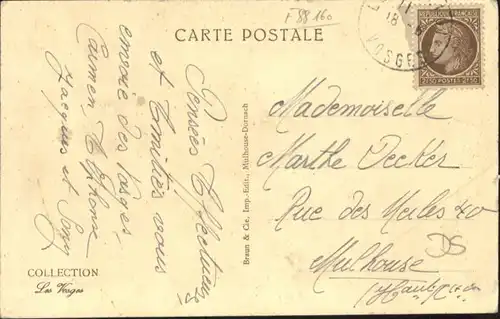 F 88 160
CARTE POSTALE
18
VOSGES
REPUBLIQUE FRANÇAISE
2F50 POSTES 2F50
Pensées Affectueuses
et Amitiés vous
envoie des Vosges
Carmen, Alphonse
Jacques et
Braun & Cie, Imp.-Edit., Mulhouse-Dornach
Mademoiselle
Marthe Decker
Rue des 40
Mulhouse
(Haut Rhin)
DS
COLLECTION
Les Vosges